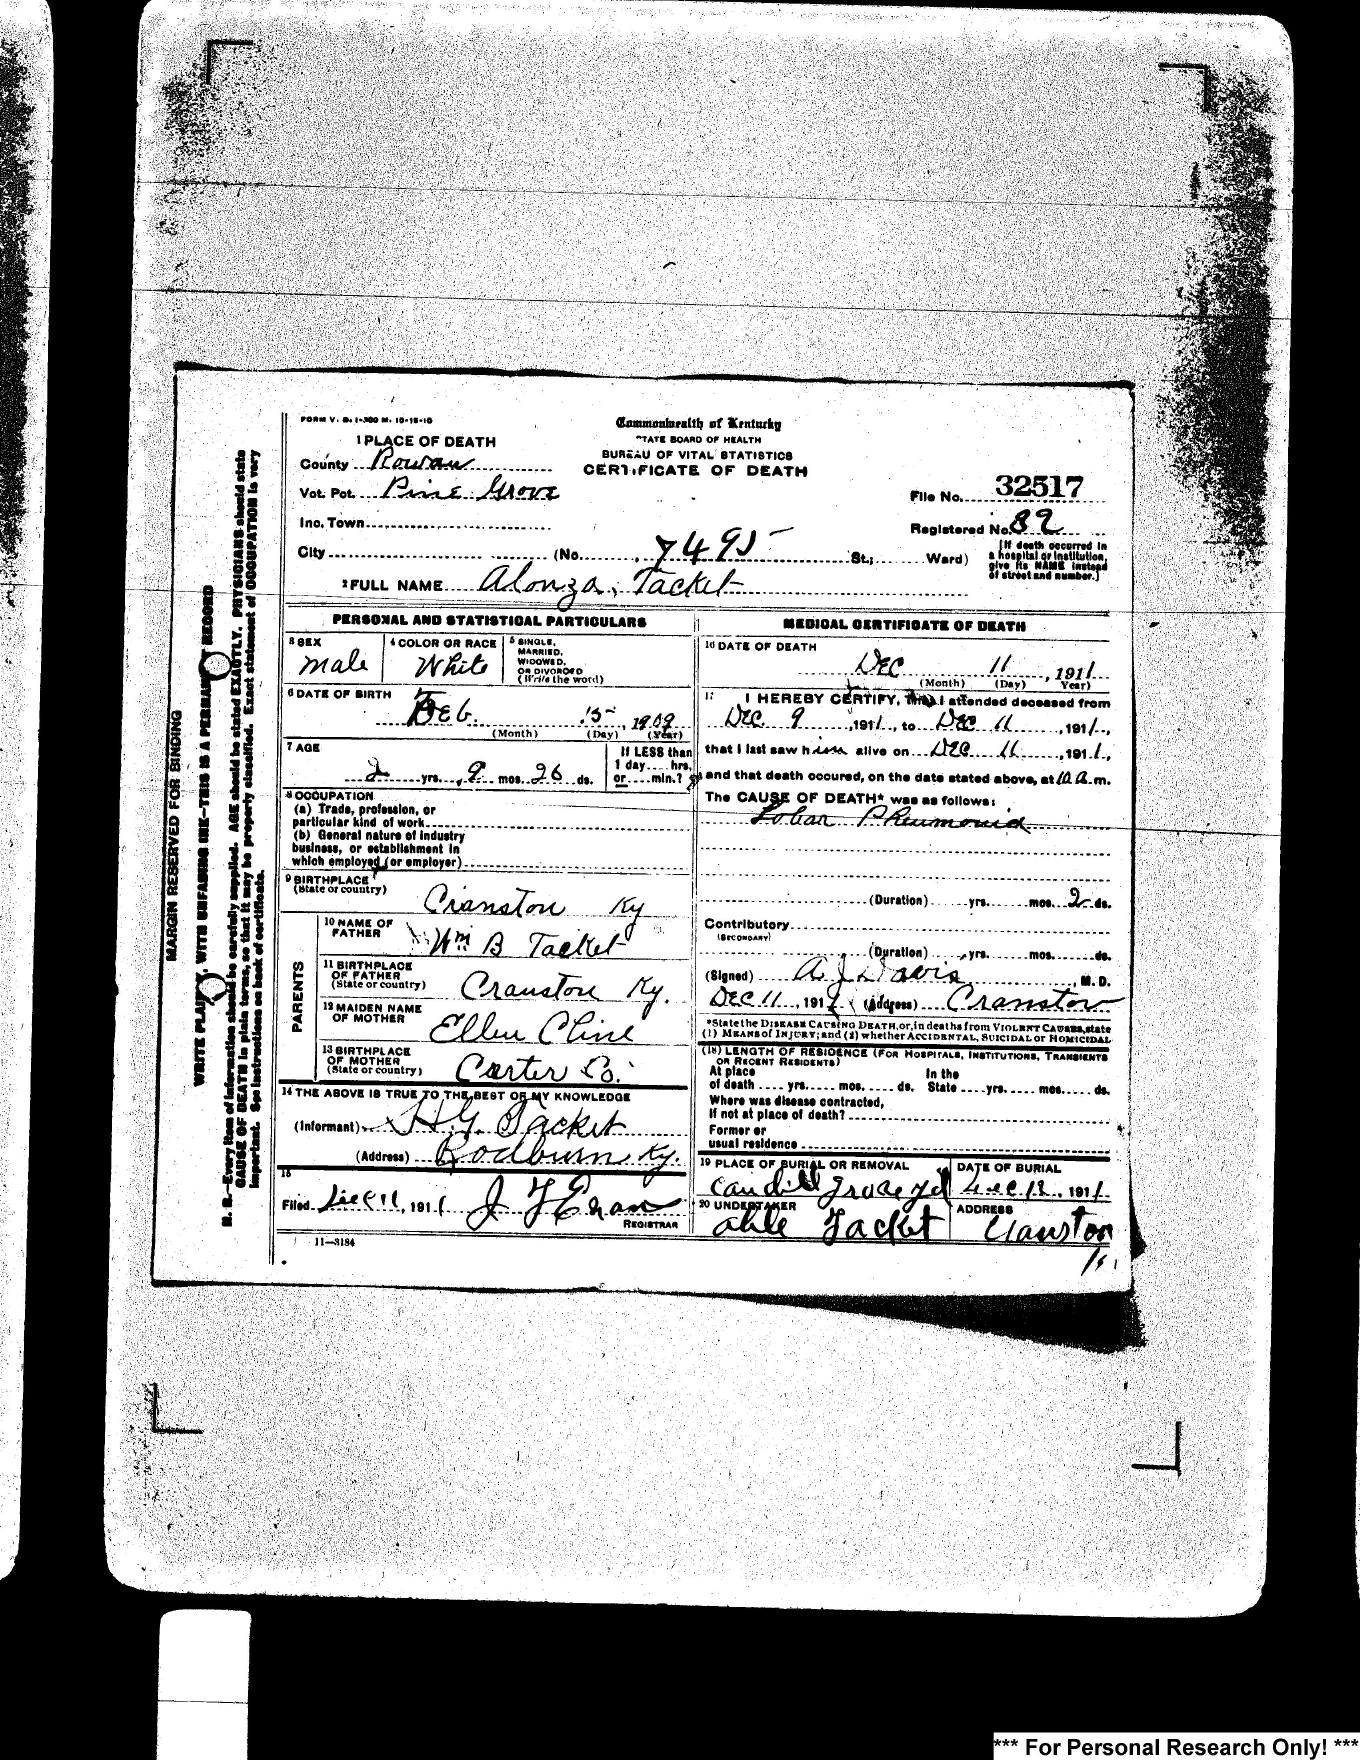 FORM V. S. 1-300 M. 10-15-10
Commonwealth of Kentucky
STATE BOARD OF HEALTH
BUREAU OF VITAL STATISTICS
CERTIFICATE OF DEATH
1 PLACE OF DEATH
County Rowan
Vot. Pct. Pine Grove
Inc. Town
City (No. 7495 St.; Ward)
File No. 32517
Registered No. 89
[If death occurred in a hospital or institution, give its NAME instead of street and number.]
2 FULL NAME Alonza Tacket
PERSONAL AND STATISTICAL PARTICULARS
3 SEX
male
4 COLOR OR RACE
White
5 SINGLE, MARRIED, WIDOWED, OR DIVORCED
(Write the word)
6 DATE OF BIRTH
Feb. 15, 1909
(Month) (Day) (Year)
7 AGE
2 yrs. 9 mos. 26 ds.
If LESS than 1 day hrs. or min.?
8 OCCUPATION
(a) Trade, profession, or
particular kind of work
(b) General nature of industry
business, or establishment in
which employed (or employer)
9 BIRTHPLACE
(State or country)
Cranston Ky
PARENTS
10 NAME OF FATHER
Wm B Tacket
11 BIRTHPLACE OF FATHER
(State or country)
Cranston Ky.
12 MAIDEN NAME OF MOTHER
Ellen Cline
13 BIRTHPLACE OF MOTHER
(State or country)
Carter Co.
14 THE ABOVE IS TRUE TO THE BEST OF MY KNOWLEDGE
(Informant) H.G. Tacket
(Address) Rodburn Ky.
15
Filed Dec 11, 1911 J F
REGISTRAR
11—3184
MEDICAL CERTIFICATE OF DEATH
16 DATE OF DEATH
Dec 11, 1911
(Month) (Day) Year)
17 I HEREBY CERTIFY, That I attended deceased from
Dec 9, 1911, to Dec 11, 1911,
that I last saw him alive on Dec 11, 1911,
and that death occured, on the date stated above, at 10 A.m.
The CAUSE OF DEATH* was as follows:
Lobar Pheumonia
(Duration) yrs. mos. 2 ds.
Contributory
(SECONDARY)
(Duration) yrs. mos. ds.
(Signed) A J Davis, M. D.
Dec 11, 1911 (Address) Cranston
*State the DISEASE CAUSING DEATH, or, in deaths from VIOLENT CAUSES, state
(1) MEANS of INJURY; and (2) whether ACCIDENTAL, SUICIDAL or HOMICIDAL
(18) LENGTH OF RESIDENCE (FOR HOSPITALS, INSTITUTIONS, TRANSIENTS
OR RECENT RESIDENTS)
At place of death yrs. mos. ds. In the State yrs. mos. ds.
Where was disease contracted,
if not at place of death?
Former or
usual residence
19 PLACE OF BURIAL OR REMOVAL
Caudill graveyd
DATE OF BURIAL
Dec 12, 1911
20 UNDERTAKER
able Tacket
ADDRESS
Cranston
MARGIN RESERVED FOR BINDING
WRITE PLAINLY, WITH UNFADING INK—THIS IS A PERMANENT RECORD
N. B.—Every item of information should be carefully supplied. AGE should be stated EXACTLY. PHYSICIANS should state
CAUSE OF DEATH in plain terms, so that it may be properly classified. Exact statement of OCCUPATION is very
important. See instructions on back of certificate.
*** For Personal Research Only! ***